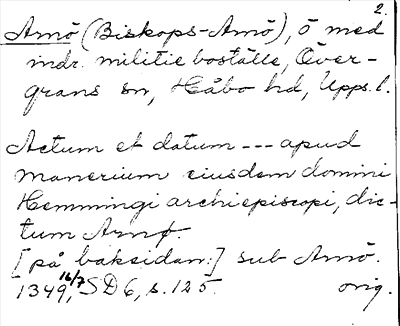 2.
Arnö (Biskops-Arnö), ö med
indr. militieboställe, Över-
grans sn, Håbo hd, Upps. l.
Actum et datum --- apud
manerium eiusdem domini
Hemmingi archiepiscopi, dic-
tum Arnø.
[på baksidan:] sub Arnö.
1349, 16/7 SD 6, s. 125. orig.